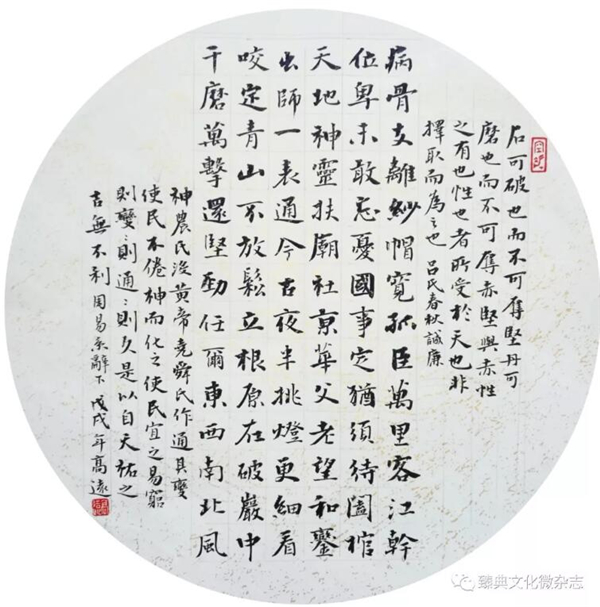 石可破也而不可奪堅丹可
磨也而不可奪赤堅與赤性
之有也性也者所受於天也非
擇取而為之也 呂氏春秋誠廉
病骨支離紗帽寬孤臣萬里客江幹
位卑未敢忘憂國事定猶須待闔棺
天地神靈扶廟社京華父老望和鑾
出師一表通今古夜半挑燈更細看
咬定青山不放鬆立根原在破巖中
千磨萬擊還堅勁任爾東西南北風
神農氏沒黃帝堯舜氏作通其變
使民不倦神而化之使民宜之易窮
則變變則通通則久是以自天祐之
吉無不利周易系辭下 戊戌年高遠
臻典文化微杂志